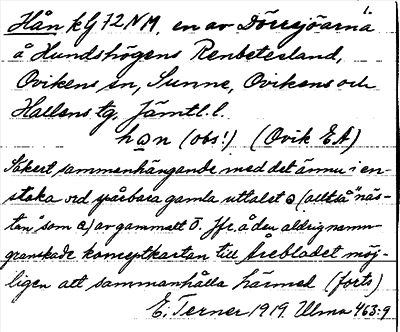 1.
Hån kG 72 NM, en av Dörrsjöarna
å Hundshögens Renbetesland,
Ovikens sn, Sunne, Ovikens och
Hallens tg. Jämtl. l.
han (obs!) (Ovik E.A)
Säkert sammanhängande med det ännu i en-
staka ord spårbara gamla uttalet a (alltså "näs-
tan" som a) av gammalt ō. Jfr. å den aldrig namn-
granskade konceptkartan till Årebladet möj-
ligen att sammanhålla härmed (forts)
E. Terner 1919. Ulma 463:9